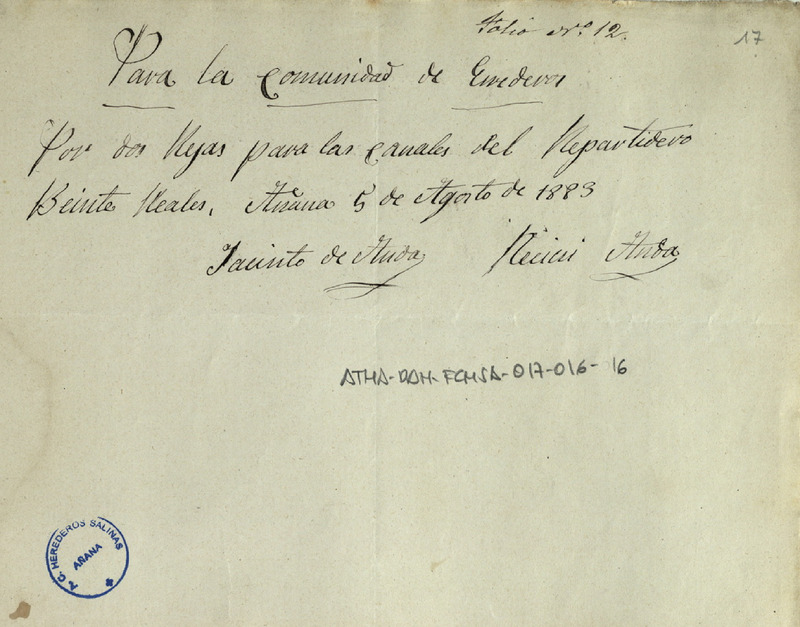 Folio nº. 12.
17
Para la Comunidad de Erederos
Por dos Rejas para las canales del Repartidero
Beinte Reales, Añana 5 de Agosto de 1883
Jacinto de Anda Recici Anda
ATHA-DAH-FCMSA-017-016-16
A. C. HEREDEROS SALINAS
AÑANA